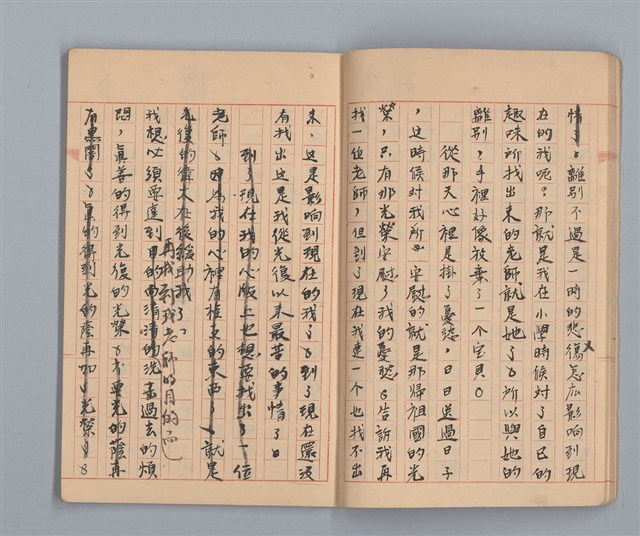 情了。離別不過是一時的悲傷怎広影响到現
在的我呢？那就是我在小學時候対了自己的
趣味所找出来的老師就是她了。所以與她的
離別，手裡好像放棄了一个宝貝。
從那天心裡是掛了憂愁，日日送過日子
，這時候対我所安慰的就是那帰祖國的光
榮，只有那光榮安慰了我的憂愁。告訴我再
找一位老師，但到了現在我連一个也找不出
来，這是影响到現在的我了。到了現在還没
有找出這是我從光復以来最苦的事情了。
到了現在我的心版上也想要找出了一位
老師。因為我的心裡有極大的東西了。就是
光復的偉大在後総助我了。
我想必須要達到目的而清清的洗盡過去的煩
再找到我老師的目的而已
悶，真善的得到光復的光榮。不要光的蔭再
有黒闇了。真的得到光的蔭再加了光榮了。